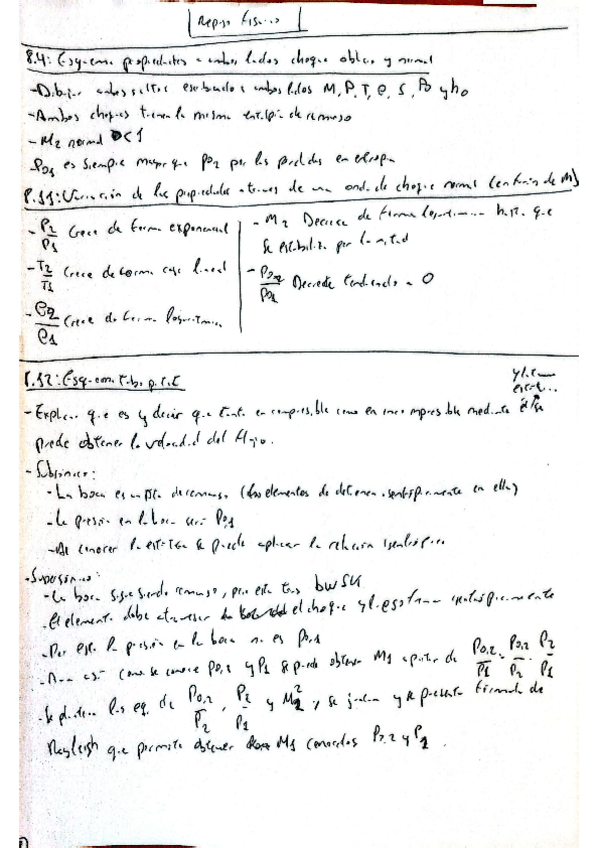 Repaso Física
8.4: Esquema propiedades a ambos lados choque oblicuo y normal
-Dibujar ambos saltos escribiendo a ambos lados M, P, T, ρ, S, P0 y h0
-Ambos choques tienen la misma entalpía de remanso
-M2 normal < 1
-P01 es siempre mayor que P02 por las perdidas en entropía
8.11: Variación de las propiedades a traves de una onda de choque normal (en función de M)
-P2/P1 Crece de forma exponencial
-T2/T1 Crece de forma casi lineal
-ρ2/ρ1 Crece de forma logaritmica
-M2 Decrece de forma hasta que
se estabiliza por la mitad
-P02/P01 Decrece tendiendo a 0
8.12: Esquema tubo pitot
-Explicar que es y decir que tanto en compresible como en incompresible mediante él se
puede obtener la velocidad del flujo.
-Subsónico:
-La boca es un pto de remanso (los elementos de detienen isentrópicamente en ella)
-La presión en la boca será P0,1
-Al conocer la estática se puede aplicar la relación isentrópica
-Supersónico:
-La boca sigue siendo remanso, pero esta tras bow SW
-El elemento debe atravesar el choque y luego frenar isentrópicamente
-Por esto la presión en la boca no es P0,1
-Aun así como se conoce P0,2 y P1 se puede obtener M1 a partir de P0,2/P1 = P0,2/P2 · P2/P1
-Se plantean las eq. de P0,2/P2, P2/P1 y M2², se juntan y se presenta Formula de
Rayleigh que permite obtener M1 conocidos P0,2 y P1.